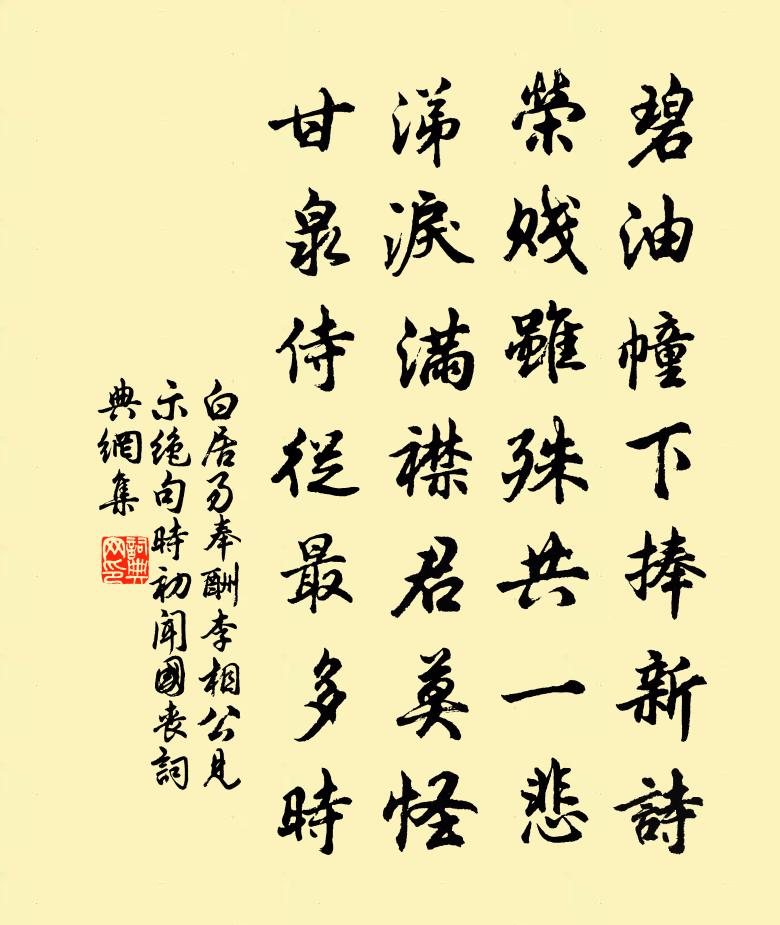 碧油幢下捧新詩
榮賤雖殊共一悲
涕淚滿襟君莫怪
甘泉侍從最多時
白居易奉酬李相公見
示絶句時初聞國喪詞
典網集
詞典
网印